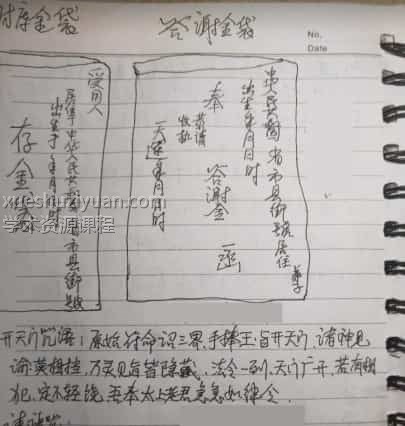 财库金袋
答谢金袋
No.
Date
受用人
居住中华人民共和国 省市县乡镇
出生于 年月日时
存金袋
中华人民共和国 省市县乡镇居住 弟子
出生年月日时
奉 答谢金 一函
恭请
收执
天运年月日时
xueshuziyuan.com
学术资源课程
开天门咒语：原始符命 诏三界，手捧玉旨开天门，诸神见
谕莫相拦，万灵见旨皆隐藏，法令一到，天门广开，若有相
犯，定不轻饶，吾奉太上老君急急如律令。